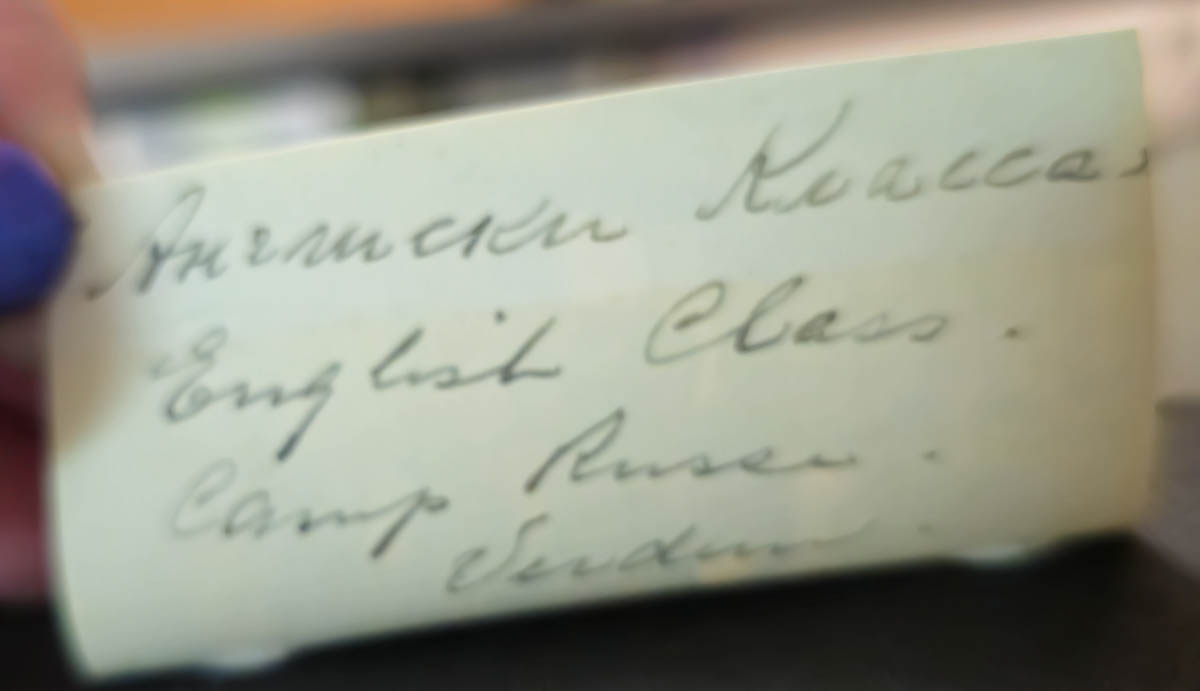 Англиски Класса
English Class.
Camp Russe.
Verdun.